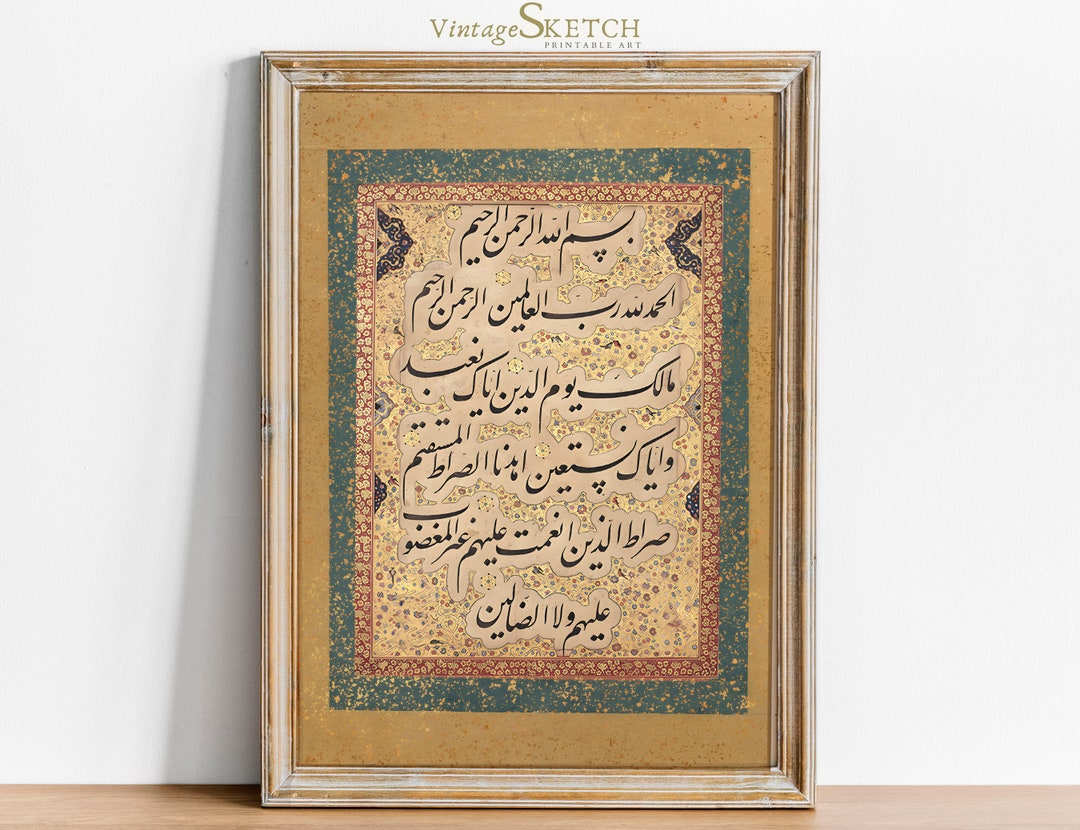 VintageSKETCH
PRINTABLE ART
بسم الله الرحمن الرحیم
الحمدلله رب العالمین الرحمن الرحیم
مالک یوم الدین ایاک نعبد
وایاک نستعین اهدنا الصراط المستقیم
صراط الذین انعمت علیهم غیر المغضوب
علیهم ولا الضالین